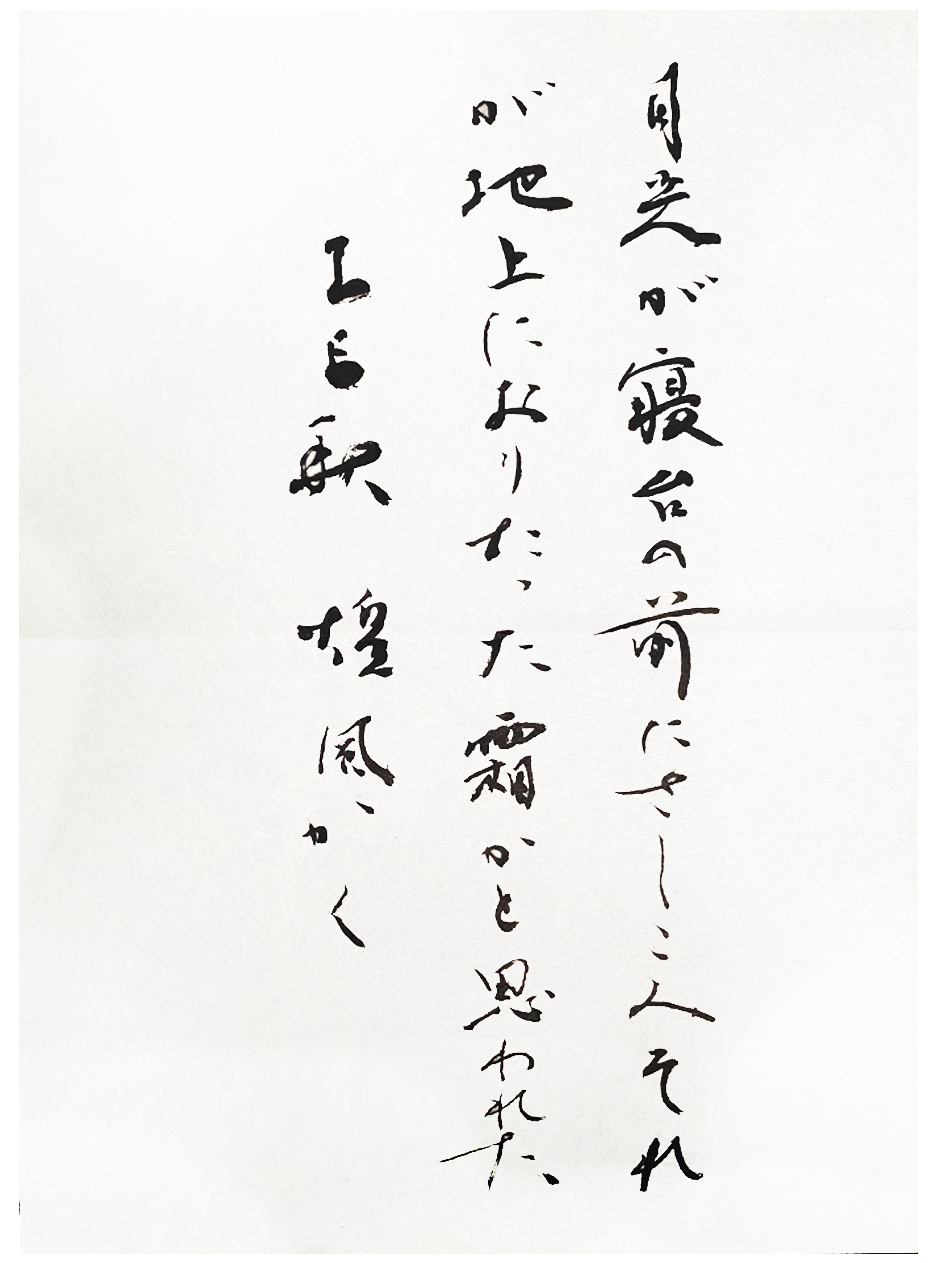 月光が寝台の前にさしこんそれ
が地上におりたった霜かと思われた、
煌風かく